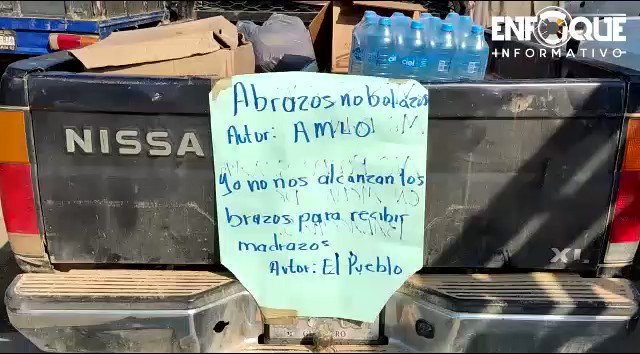 ENFOQUE
INFORMATIVO
NISSA
Abrazos no balazos
Autor: AMLO
ya no nos alcanzan los
brazos para recibir
madrazos
Autor: El Pueblo
XL
ciel